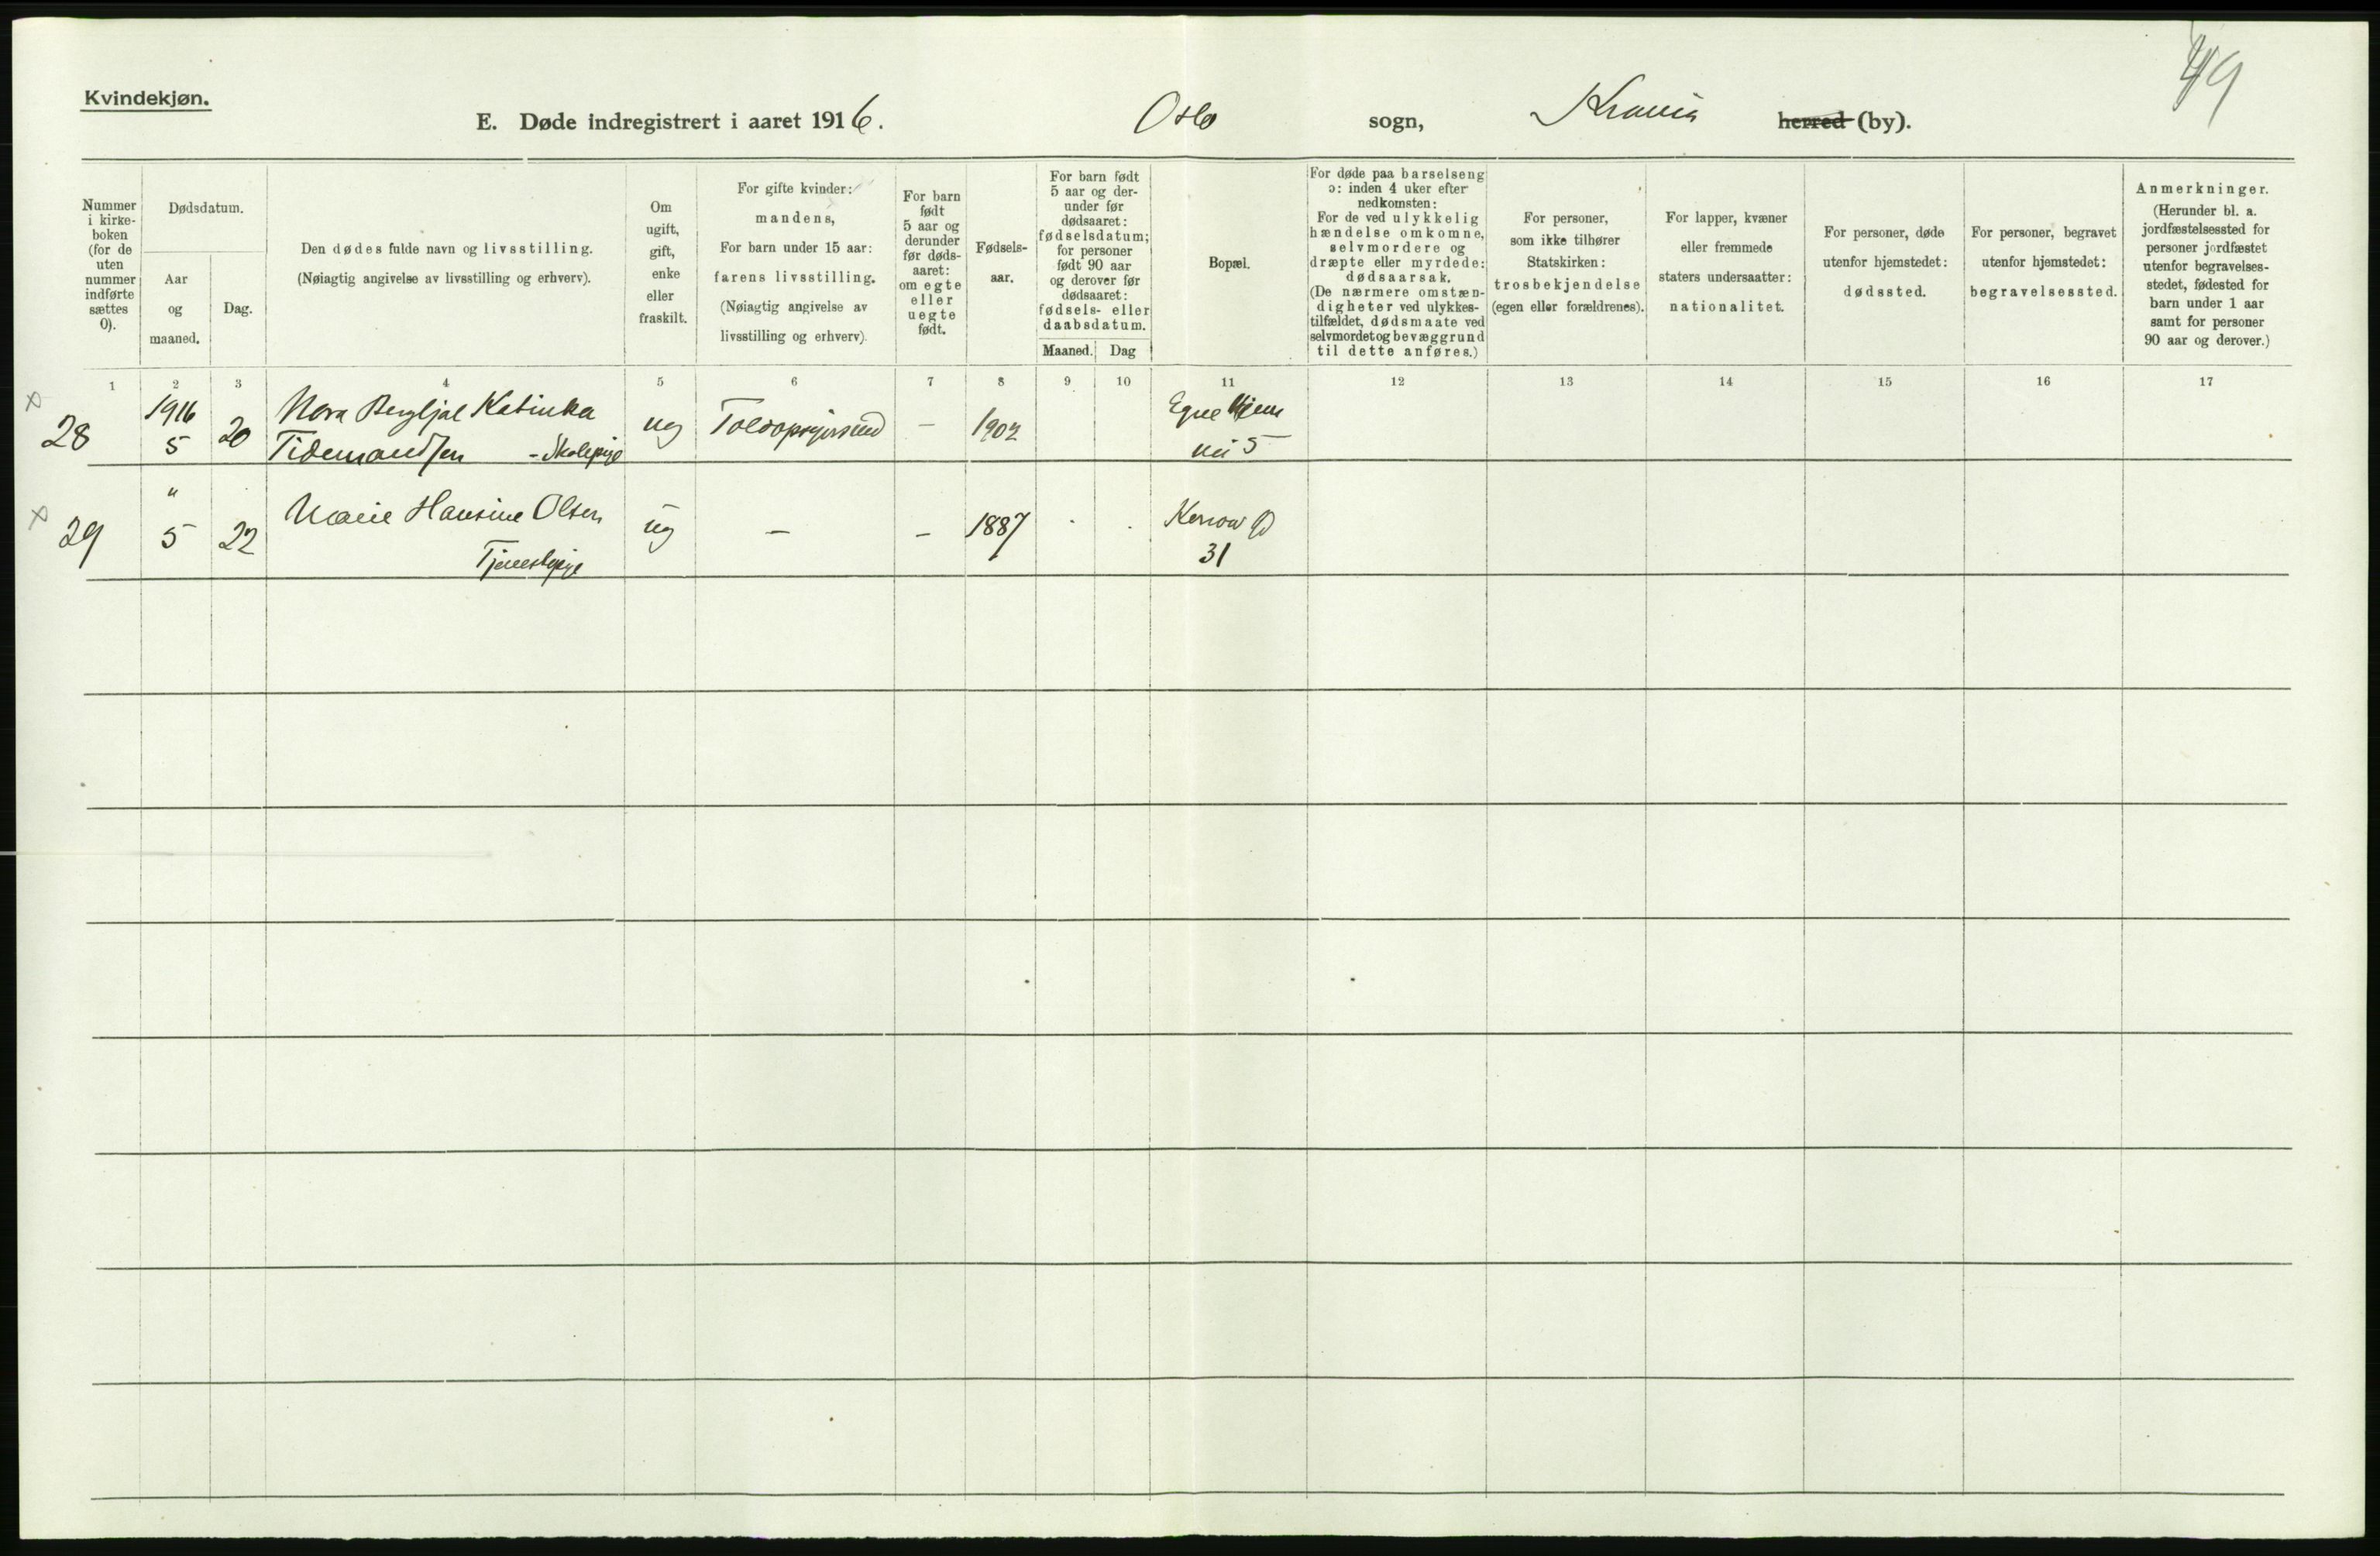 49
Kvindekjøn.
E. Døde indregistrert i aaret 1916. Oslo sogn, Krania herred (by).
Nummer
i kirke-
boken
(for de
uten
nummer
indførte
sættes
0).
Dødsdatum.
Aar
og
maaned.
Dag.
Den dødes fulde navn og livsstilling.
(Nøiagtig angivelse av livsstilling og erhverv).
Om
ugift,
gift,
enke
eller
fraskilt.
For gifte kvinder:
mandens,
For barn under 15 aar:
farens livsstilling.
(Nøiagtig angivelse av
livsstilling og erhverv).
For barn
født
5 aar og
derunder
før døds-
aaret:
om egte
eller
uegte
født.
Fødsels-
aar.
For barn født
5 aar og der-
under før
dødsaaret:
fødselsdatum;
for personer
født 90 aar
og derover før
dødsaaret:
fødsels- eller
daabsdatum.
Maaned. Dag
Bopæl.
For døde paa barselseng
ɔ: inden 4 uker efter
nedkomsten:
For de ved ulykkelig
hændelse omkomne,
selvmordere og
dræpte eller myrdede:
dødsaarsak.
(De nærmere omstæn-
digheter ved ulykkes-
tilfældet, dødsmaate ved
selvmordet og bevæggrund
til dette anføres.)
For personer,
som ikke tilhører
Statskirken:
trosbekjendelse
(egen eller forældrenes).
For lapper, kvæner
eller fremmede
staters undersaatter:
nationalitet.
For personer, døde
utenfor hjemstedet:
dødssted.
For personer, begravet
utenfor hjemstedet:
begravelsessted.
Anmerkninger.
(Herunder bl. a.
jordfæstelsessted for
personer jordfæstet
utenfor begravelses-
stedet, fødested for
barn under 1 aar
samt for personer
90 aar og derover.)
1 2 3 4 5 6 7 8 9 10 11 12 13 14 15 16 17
x 28 1916 5 20 Nora Bergljot Katinka
Tidemandsen - Skolepige ug - 1902 Egne Hjem
nr 5
x 29 " 5 22 Marie Hansine Olsen
Tjenestepige ug - - 1887
31